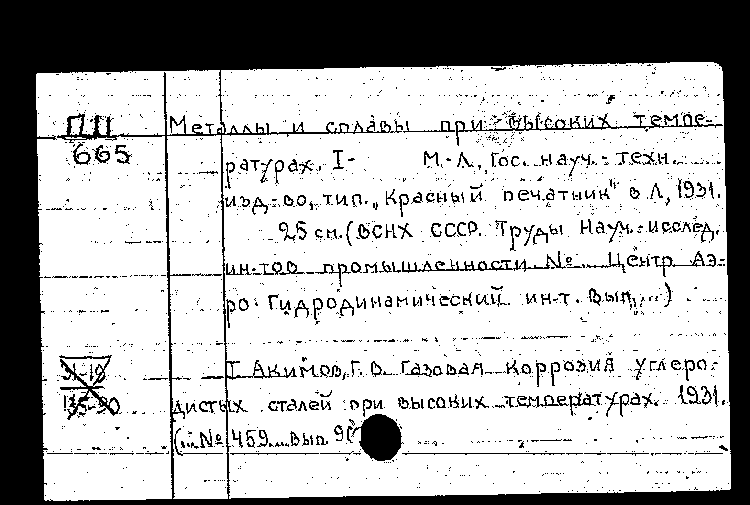 П11
665
Металлы и сплавы при высоких темпе-
ратурах. I- М.-Л., Гос. науч.-техн.
изд-во, тип. "Красный печатник" в Л, 1931.
25 см. (ВСНХ СССР. Труды науч.-исслед.
ин-тов промышленности. № ... Центр Аэ-
ро-Гидродинамический ин-т. Вып....)
I. Акимов, Г. В. Газовая коррозия углеро-
31-18
135-90
дистых сталей при высоких температурах. 1931.
(...№ 459... Вып. 90